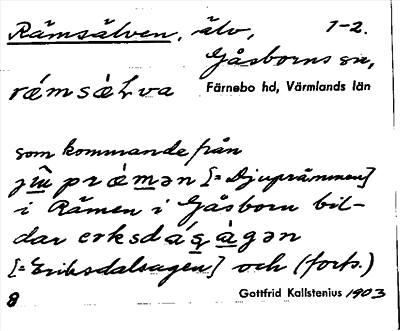 Rämsälven, älv, 1-2.
Gåsborns sn,
rǽmsæ̀Ƚva Färnebo hd, Värmlands län
som kommande från
jûprǽmən [= Djuprämmen]
i Rämen i Gåsborn bil-
dar erksdáꞩàgən
[= Eriksdalsagen] och (forts.)
8 Gottfrid Kallstenius 1903